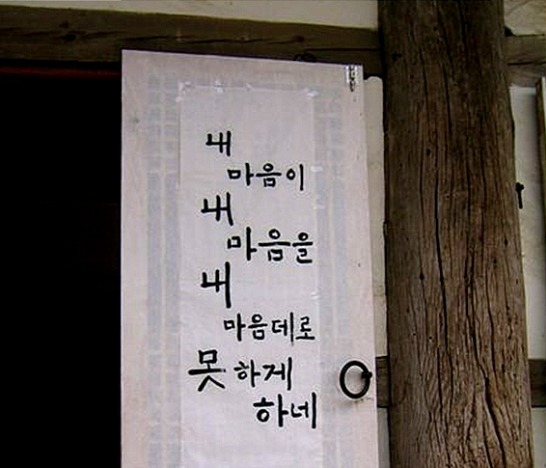 내
마음이
내
마음을
내
마음데로
못 하게
하네